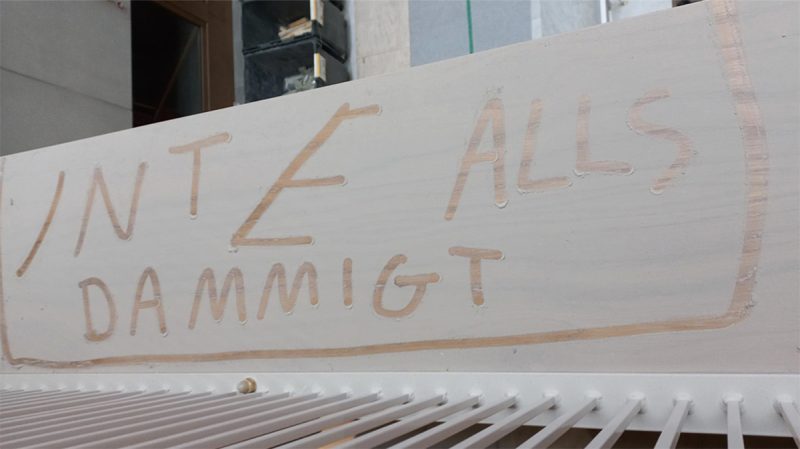 INTE ALLS
DAMMIGT